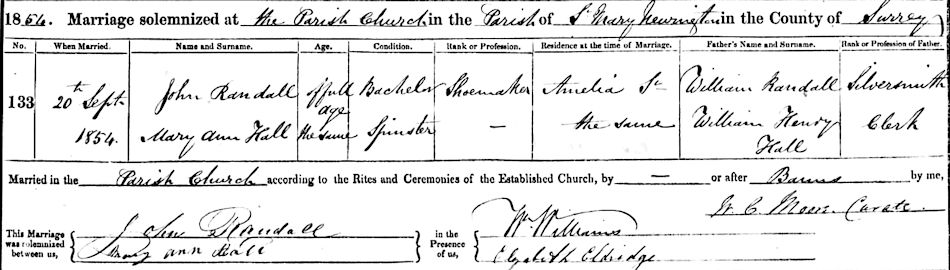 1854. Marriage solemnized at the Parish Church in the Parish of St Mary Newington in the County of Surrey
No. When Married. Name and Surname. Age. Condition. Rank or Profession. Residence at the time of Marriage. Father's Name and Surname. Rank or Profession of Father.
133 20th Sept John Randall of full age Bachelor Shoemaker Amelia St William Randall Silversmith
1854. Mary Ann Hall the same Spinster — the same William Henry Hall Clerk
Married in the Parish Church according to the Rites and Ceremonies of the Established Church, by — or after Banns by me,
W. C. Moore Curate.
This Marriage was solemnized between us, John Randall in the Presence of us, Wm Williams
Mary ann Hall Elizabeth Eldridge